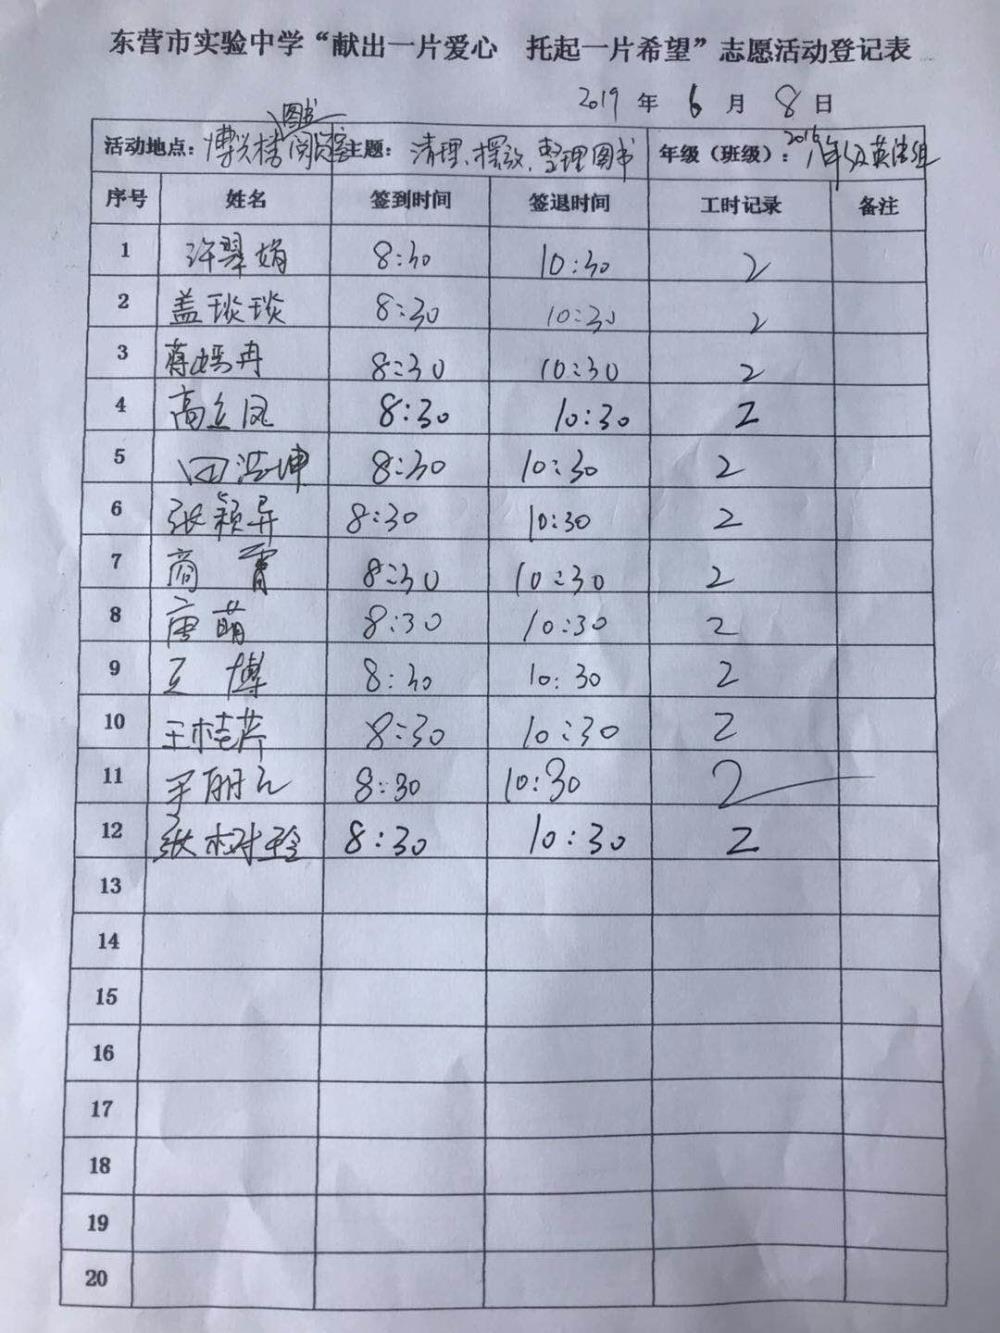 东营市实验中学“献出一片爱心 托起一片希望”志愿活动登记表
2019 年 6 月 8 日
图书
活动地点：博兴楼阅览室 主题：清理、摆放、整理图书 年级（班级）：2016级英语组
序号 姓名 签到时间 签退时间 工时记录 备注
1 许翠娟 8:30 10:30 2
2 盖琰琰 8:30 10:30 2
3 蒋嫣冉 8:30 10:30 2
4 高立凤 8:30 10:30 2
5 田浩坤 8:30 10:30 2
6 张颖异 8:30 10:30 2
7 商霄 8:30 10:30 2
8 唐萌 8:30 10:30 2
9 王博 8:30 10:30 2
10 王桂芹 8:30 10:30 2
11 丽 8:30 10:30 2
12 张树玲 8:30 10:30 2
13
14
15
16
17
18
19
20